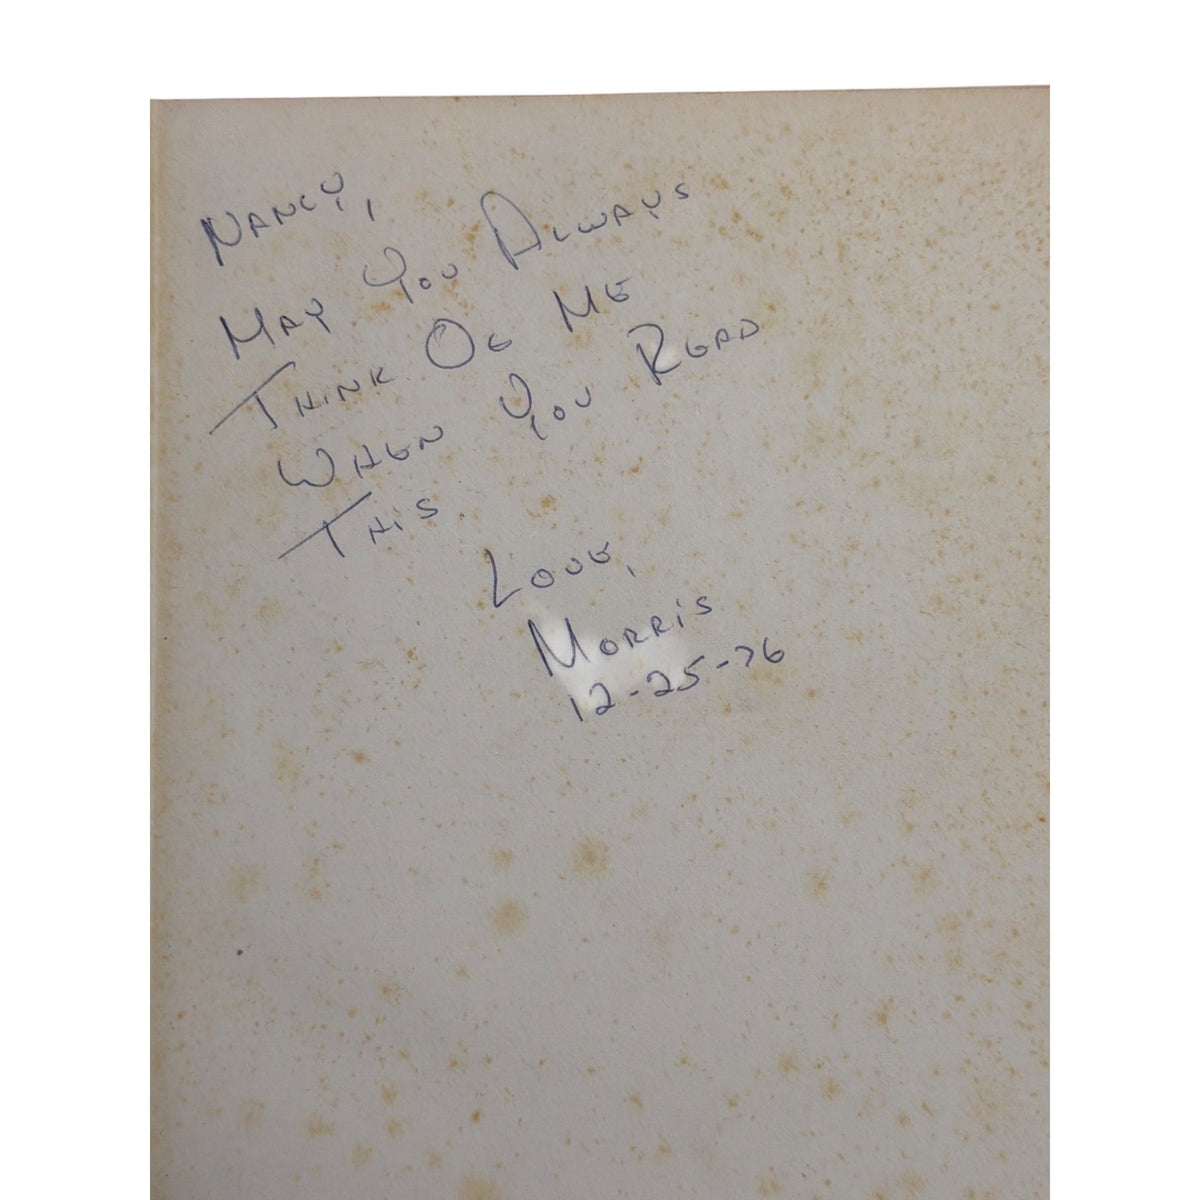 NANCY,
MAY YOU ALWAYS
THINK OF ME
WHEN YOU READ
THIS.
LOVE,
MORRIS
12-25-76